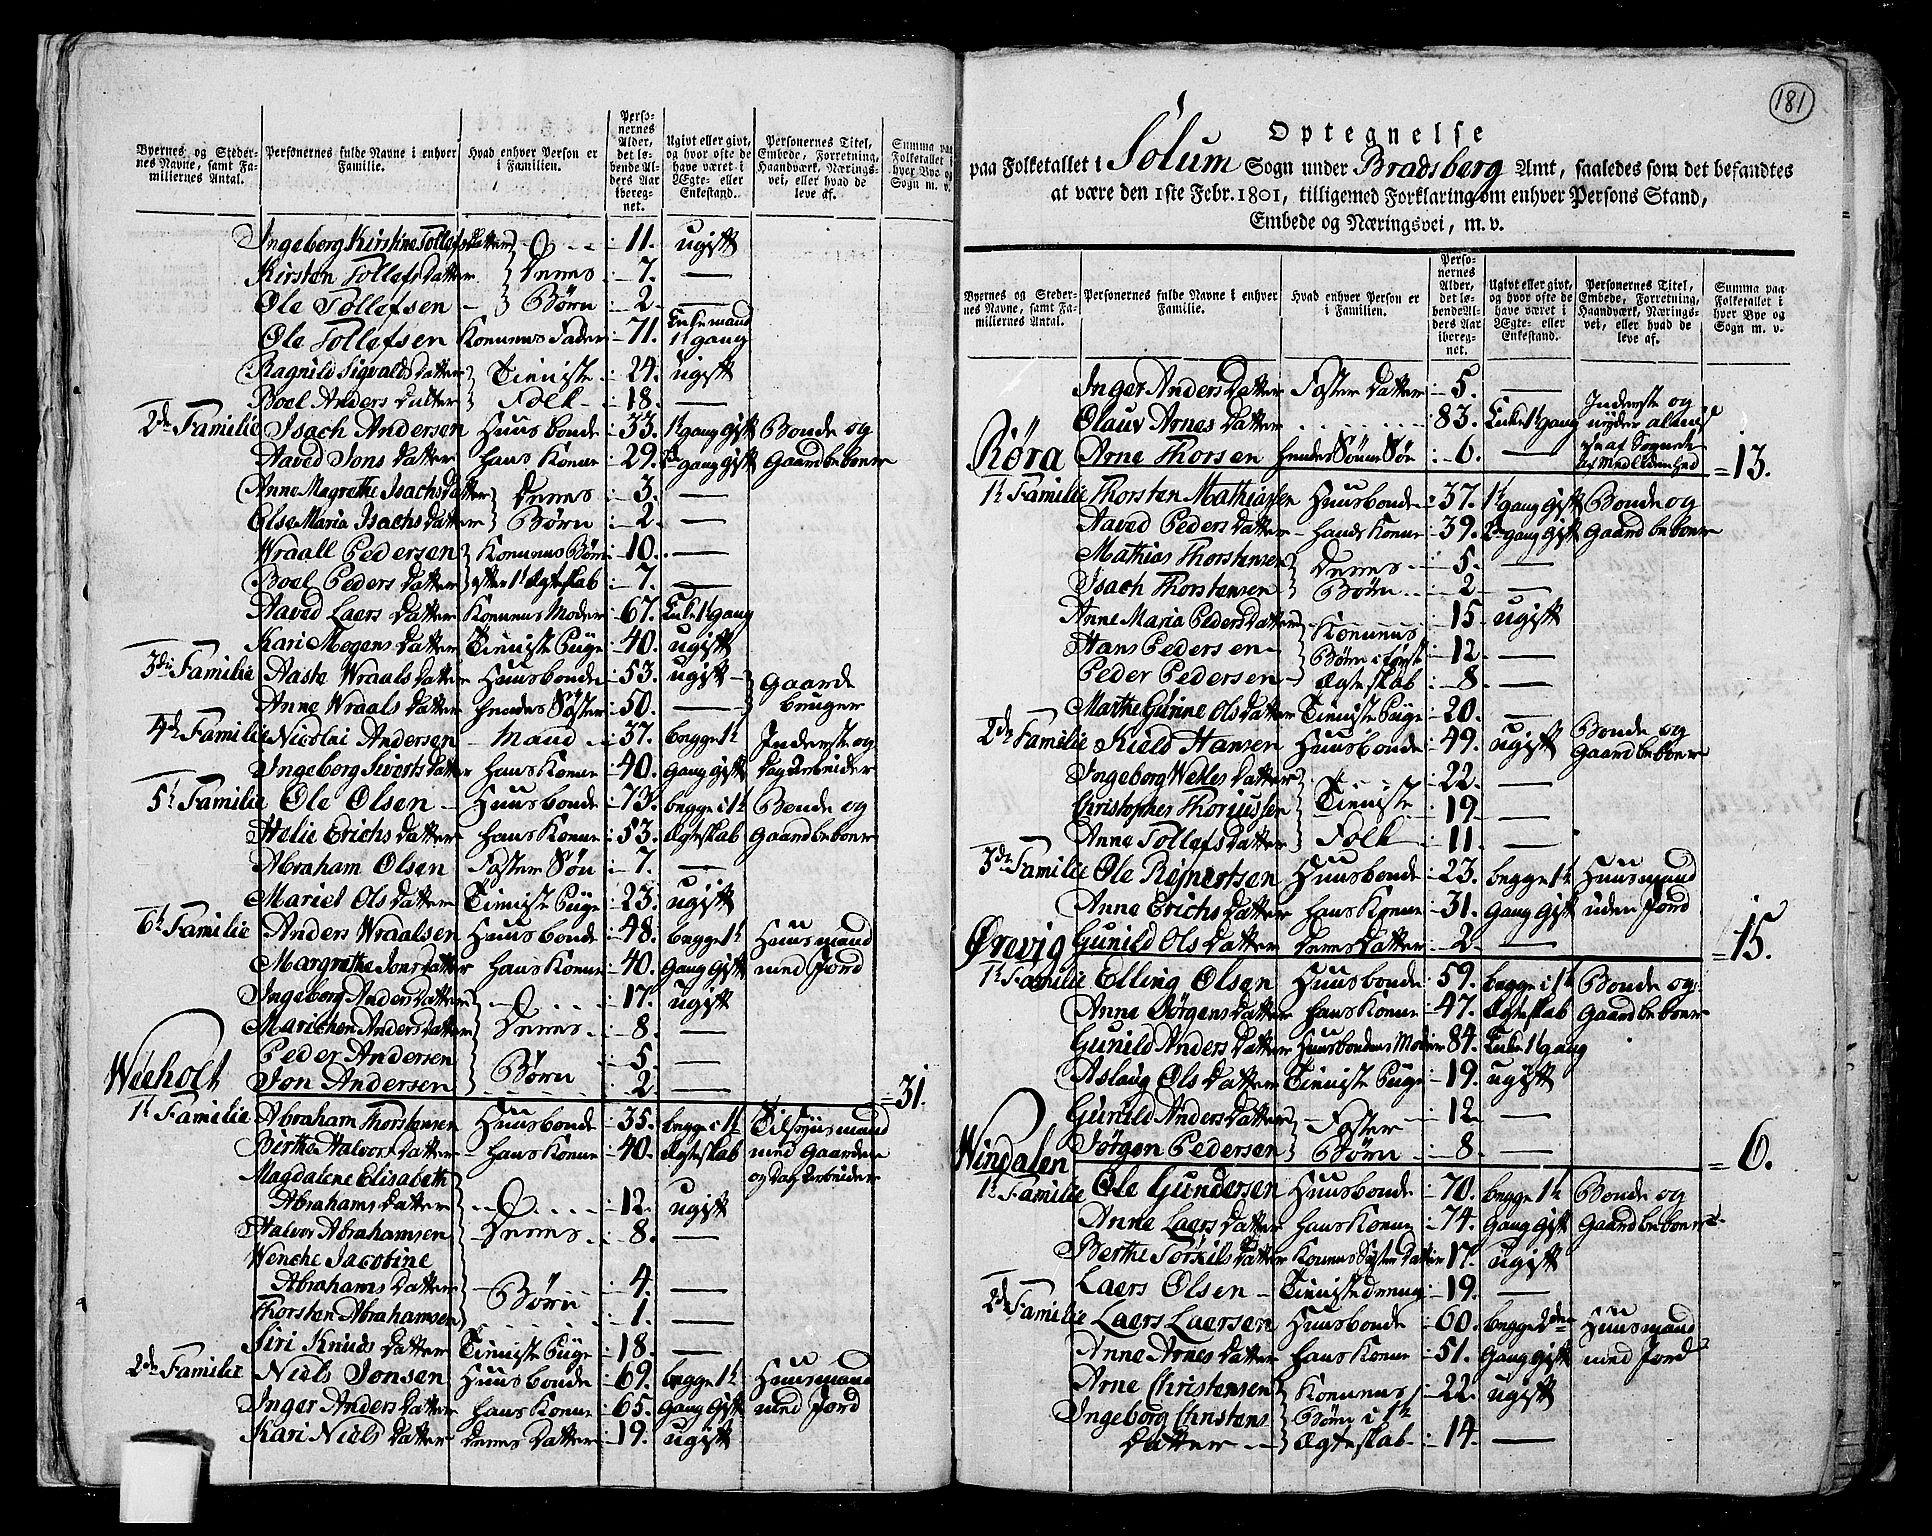 Byernes og Steder-
nes Navne, samt Fa-
miliernes Antal.
Personernes fulde Navne i enhver
Familie.
Hvad enhver Person er
i Familien.
Perso-
nernes
Alder,
det lø-
bende Al-
ders Aar
iberegnet.
Ugivt eller givt,
og hvor ofte de
have været i
Ægte- eller
Enkestand.
Personernes Titel,
Embede, Forretning,
Haandværk, Nærings-
vei, eller hvad de
leve af.
Summa paa
Folketallet i
hver Bye og
Sogn m. v.
Ingeborg Kirstine Tollefs Datter 11. ugift
Kirsten Tollefs Datter Deres 7. —
Ole Tollefsen Børn 2 —
Ole Tollefsen Konens Fader 71. Enkemand 1t gang
Ragnild Sigvalds Datter Tieniste 24. ugift
Boel Anders Datter Folk 18. —
2den Familie Isach Andersen Huusbonde 33. 1t gang gift Bonde og
Aaved Jons Datter hans Konne 29. gang gift Gaardbeboer
Anne Magrethe Isachs Datter Deres 3. —
Else Maria Isachs Datter Børn 2 —
Wraall Pedersen Konens Børn 10. —
Boel Peders Datter efter 1t Ægteskab 7. —
Aaved Laers Datter Konens Moder 67. Enke 1t gang
Kari Mogens Datter Tieniste Pige 40. ugift
3die Familie Aaste Wraals Datter Huusbonde 53. ugift Gaard
Anne Wraals Datter hendes Søster 50. — bruger
4de Familie Nicolai Andersen Mand 37. begge 1t Inderste og
Ingeborg Siverts Datter hans Konne 40. Gang Gift Dag Arbeider
5t Familie Ole Olsen Huusbonde 73. begge i 1t Bonde og
Helie Erichs Datter hans Konne 53. Ægteskab Gaardbeboer
Abraham Olsen Foster Søn 7. —
Mariet Ols Datter Tieniste Pige 23. ugift
6t Familie Anders Wraalsen Huusbonde 48. begge 1t Huusmand
Margrethe Jons Datter hans Konne 40. Gang Gift med Jord
Ingeborg Anders Datter 17. ugift
Marichen Anders Datter Deres 8. —
Peder Andersen Børn 5 —
Jon Andersen 2 — 31.
Weeholt
1t Familie Abraham Thorstensen Huusbonde 35. begge i 1t
Birthe Halvors Datter hans Konne 40. Ægteskab med Gaarden
og Dag Arbeider
Magdalene Elisabeth
Abrahams Datter 12. ugift
Halvor Abrahamsen Deres 8. —
Wenche Jacobine
Abrahams Datter Børn 4. —
Thorsten Abrahamsen 1. —
Siri Knuds Datter Tieniste Pige 18. —
2den Familie Niels Jonsen Huusbonde 69. begge 1t Huusmand
Inger Anders Datter hans Konne 65. Gang Gift med Jord
Kari Niels Datter deres Datter 19. ugift
181
Optegnelse
paa Folketallet i Solum Sogn under Bradsberg Amt, saaledes som det befandtes
at være den 1ste Febr. 1801, tilligemed Forklaring om enhver Persons Stand,
Embede og Næringsvei, m. v.
Byernes og Steder-
nes Navne, samt Fa-
miliernes Antal.
Personernes fulde Navne i enhver
Familie.
Hvad enhver Person er
i Familien.
Perso-
nernes
Alder,
det lø-
bende Al-
ders Aar
iberegnet.
Ugivt eller givt,
og hvor ofte de
have været i
Ægte- eller
Enkestand.
Personernes Titel,
Embede, Forretning,
Haandværk, Nærings-
vei, eller hvad de
leve af.
Summa paa
Folketallet i
hver Bye og
Sogn m. v.
Inger Anders Datter Foster Datter 5. —
Olauv Arnes Datter 83. Enke 1t gang Inderste og nyder almisse af Sognet
Arne Thorsen hendes Sønne Søn 6. — 13.
Røra
1t Familie Thorsten Mathiassen Huusbonde 37. 1t gang gift Bonde og
Aaved Peders Datter hands Konne 39. gang gift Gaardbeboer
Mathias Thorstensen Deres 5. —
Isach Thorstensen Børn 2 —
Anne Maria Peders Datter Konens 15 ugift
Hans Pedersen Børn i første 12 —
Peder Pedersen Ægteskab 8 —
Marthe Gurine Ols Datter Tieniste Pige 20. —
2den Familie Kield Hansen Huusbonde 49. ugift Bonde og Gaardbeboer
Ingeborg Wetles Datter 22. —
Christopher Thoriussen Tieniste 19 —
Anne Tollefs Datter Folk 11. —
3de Familie Ole Rejnertsen Huusbonde 23. begge 1t Huusmand
Anne Erichs Datter hans Konne 31. Gang Gift uden Jord
Gunild Ols Datter deres Datter 2 — 15.
Ørevig
1t Familie Elling Olsen Huusbonde 59. begge i 1t Bonde og
Anne Jørgens Datter hans Konne 47. Ægteskab Gaardbeboer
Gunild Anders Datter Huusbondens Moder 84. Enke 1t gang
Aslaug Ols Datter Tieniste Pige 19. ugift
Gunild Anders Datter Foster 12 —
Jørgen Pedersen Børn 8. — 6.
Windalen
1t Familie Ole Gundersen Huusbonde 70. begge 1t Bonde og
Anne Laers Datter hans Konne 74. Gang Gift Gaardbeboer
Berthe Torkils Datter Konens Søster Datter 17. ugift
Laers Olsen Tienistedreng 19. —
2den Familie Laers Laersen Huusbonde 60. begge 2den Huusmand
Anne Arnes Datter hans Konne 51. Gang Gift med Jord
Arne Christensen Konens 22. ugift
Ingeborg Christens Børn i 1t
Datter Ægteskab 14. —